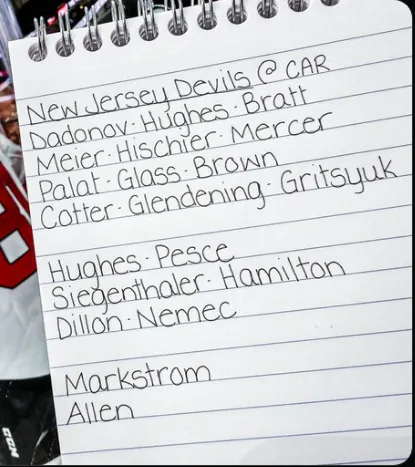 New Jersey Devils @ CAR
Dadonov · Hughes · Bratt
Meier · Hischier · Mercer
Palat · Glass · Brown
Cotter · Glendening · Gritsyuk
Hughes · Pesce
Siegenthaler · Hamilton
Dillon · Nemec
Markstrom
Allen
CCM